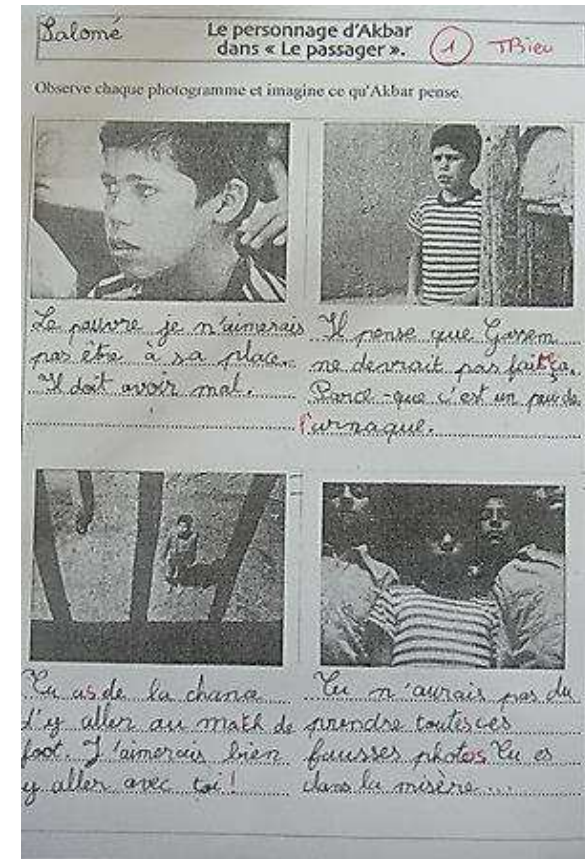 Salomé
Le personnage d'Akbar
dans « Le passager ».
1 TBien
Observe chaque photogramme et imagine ce qu'Akbar pense.
Le pauvre je n'aimerais
pas être à sa place.
Il doit avoir mal.
Il pense que Gasem
ne devrait pas faire ça.
Parce-que c'est un peu de
l'arnaque.
Tu as de la chance
d'y aller au math de
foot. J'aimerais bien
y aller avec toi !
Tu n'aurais pas du
prendre toutes ces
fausses photos Tu es
dans la misère...